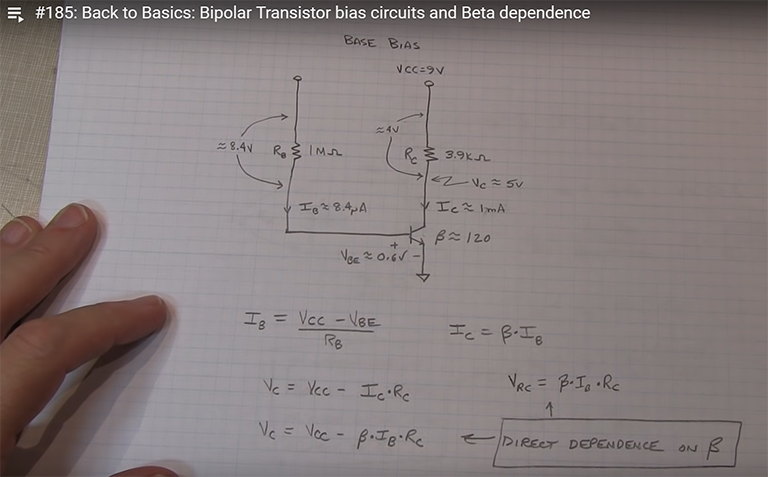 #185: Back to Basics: Bipolar Transistor bias circuits and Beta dependence
BASE BIAS
VCC=9V
≈8.4V
RB
1MΩ
≈4V
RC
3.9KΩ
VC ≈ 5V
IB ≈ 8.4µA
IC ≈ 1mA
β≈120
+
VBE ≈ 0.6V -
IB = VCC - VBE
RB
IC = β·IB
VC = VCC - IC·RC
VRC = β·IB·RC
VC = VCC - β·IB·RC
DIRECT DEPENDENCE ON β